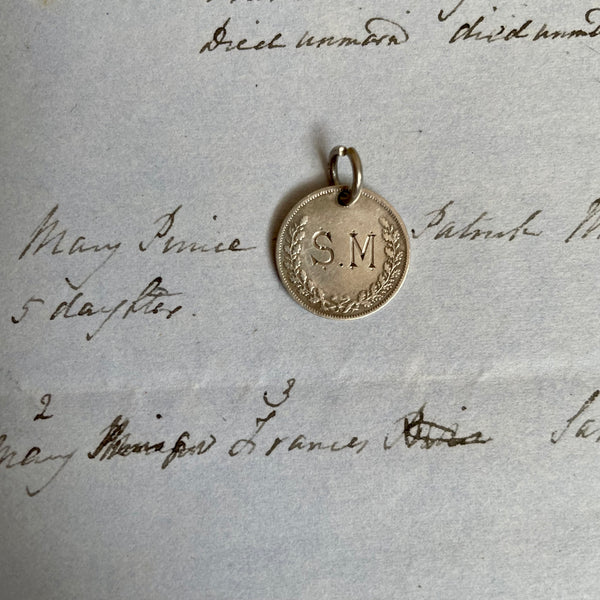 Died unmard died unmd
Mary Pirrie S.M Patrick M
5 daughter.
2 3
Mary Frances Sar